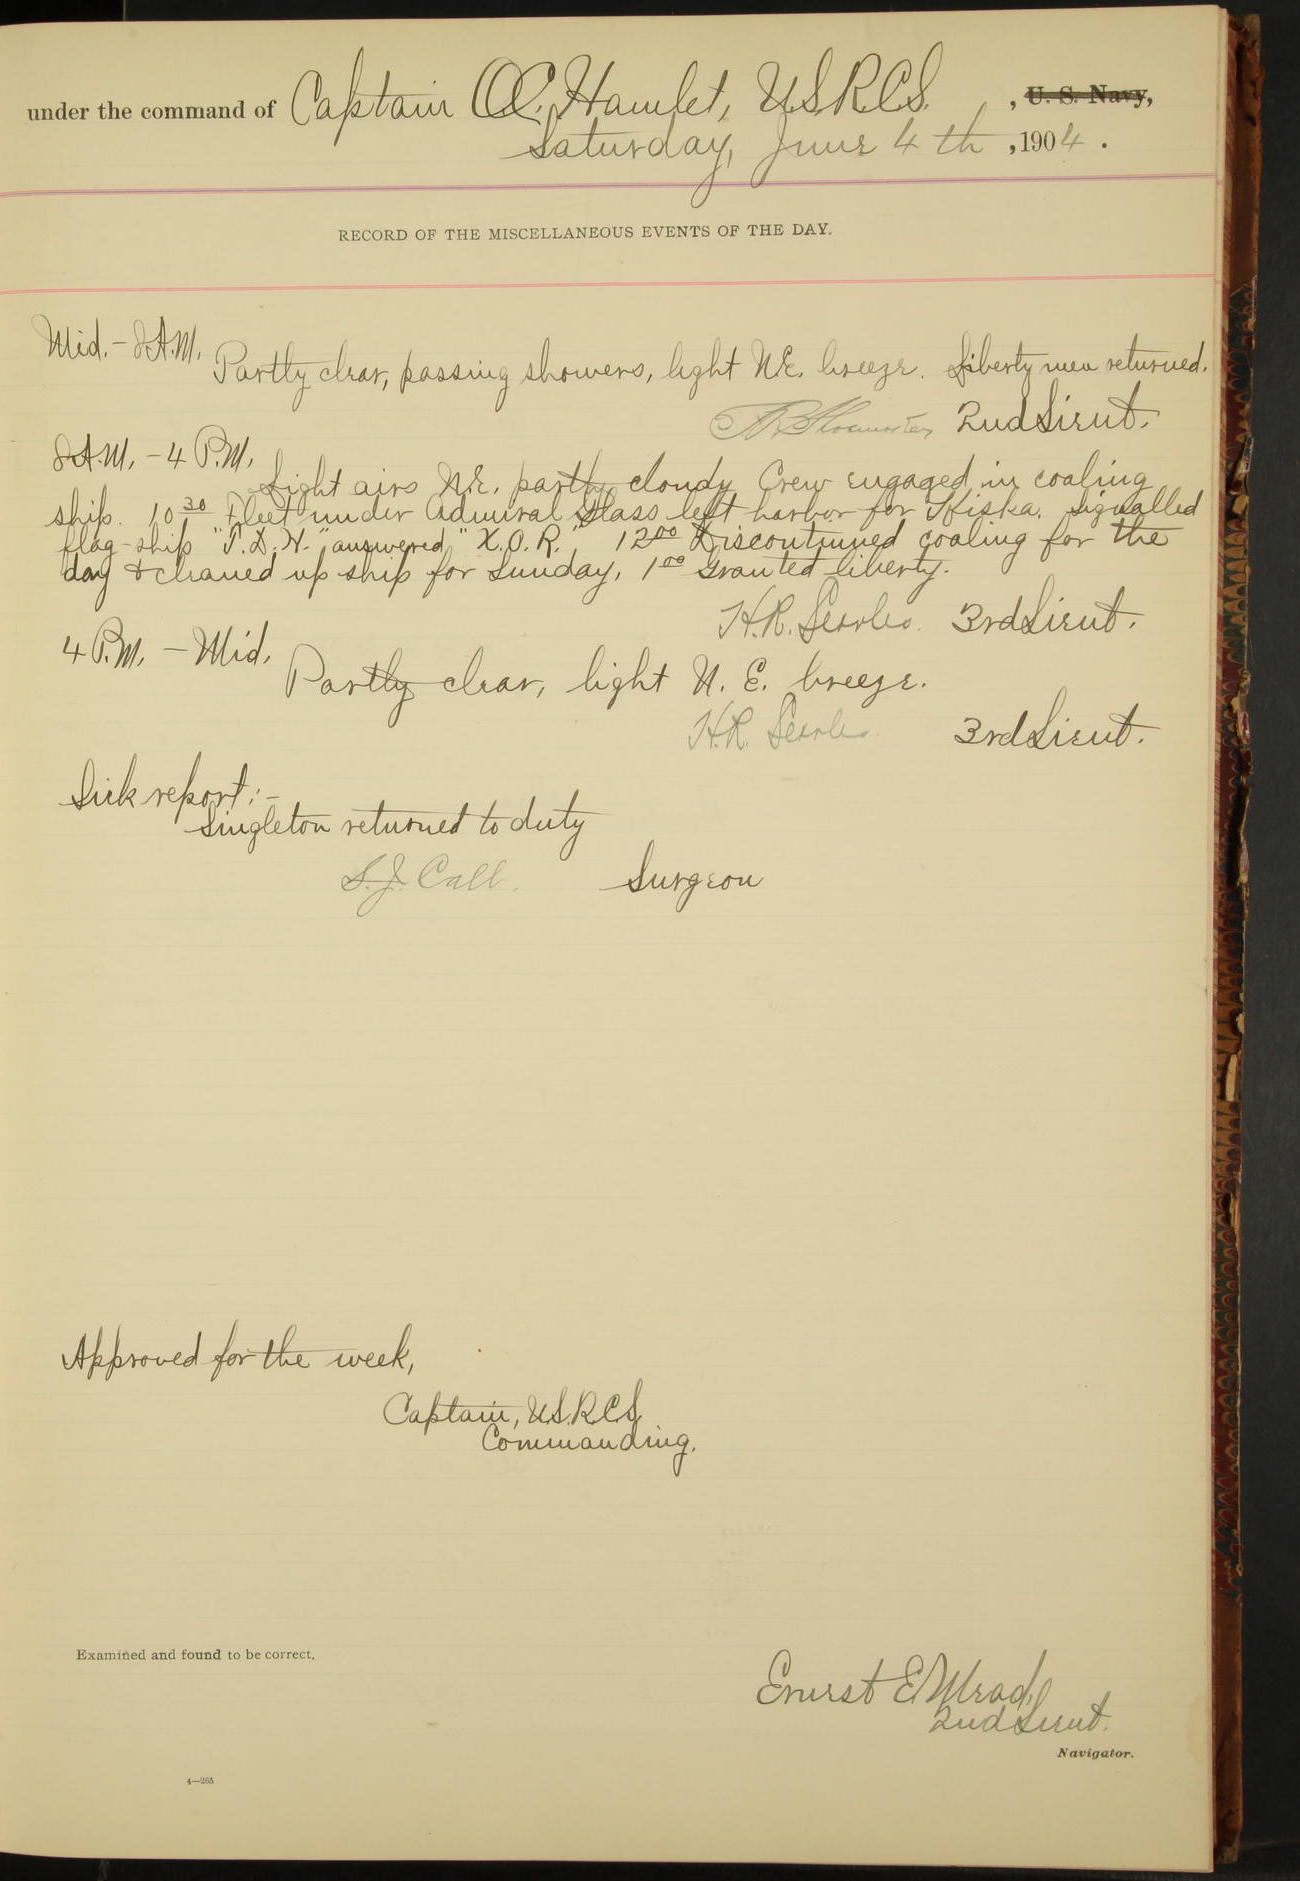 under the command of Captain O.C. Hamlet, U.S.R.C.S. , U. S. Navy,
Saturday, June 4th , 1904 .
RECORD OF THE MISCELLANEOUS EVENTS OF THE DAY.
Mid. - 8 A.M.
Partly clear, passing showers, light N.E. breeze. Liberty men returned.
2nd Lieut.
8 A.M. - 4 P.M.
Light airs N.E. partly cloudy Crew engaged in coaling
ship. 10 30 Fleet under Admiral Glass left harbor for Kiska. Signalled
flag-ship "T.D.H." answered "X.O.R." 12 00 Discontinued coaling for the
day & cleaned up ship for Sunday. 1 00 Granted liberty.
H.R. Searles. 3rd Lieut.
4 P.M. - Mid.
Partly clear, light N. E. breeze.
H.R. Searles 3rd Lieut.
Sick report:-
Singleton returned to duty
S.J. Call. Surgeon
Approved for the week,
Captain, U.S.R.C.S.
Commanding.
Examined and found to be correct.
Ernest E. Mead,
2nd Lieut.
Navigator.
4—265